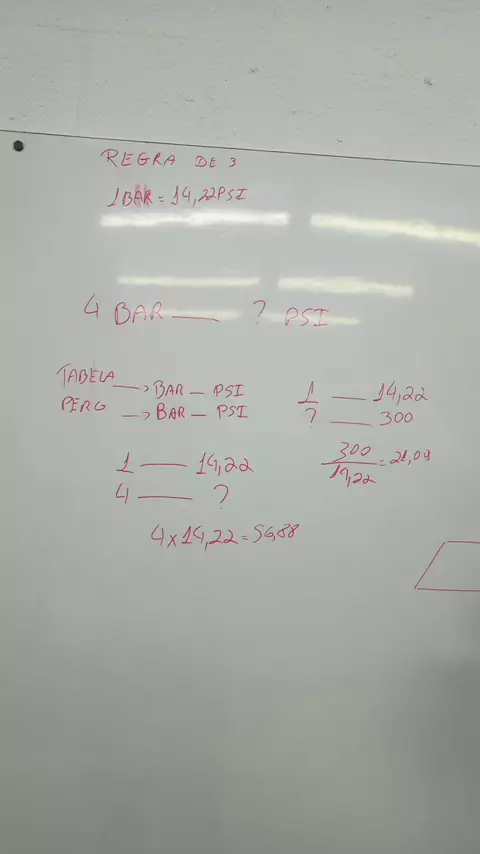 REGRA DE 3
1 BAR = 14,22 PSI
4 BAR — ? PSI
TABELA → BAR — PSI
PERG → BAR — PSI
1 — 14,22
4 — ?
4 x 14,22 = 56,88
1 — 14,22
? — 300
300
14,22
= 21,09